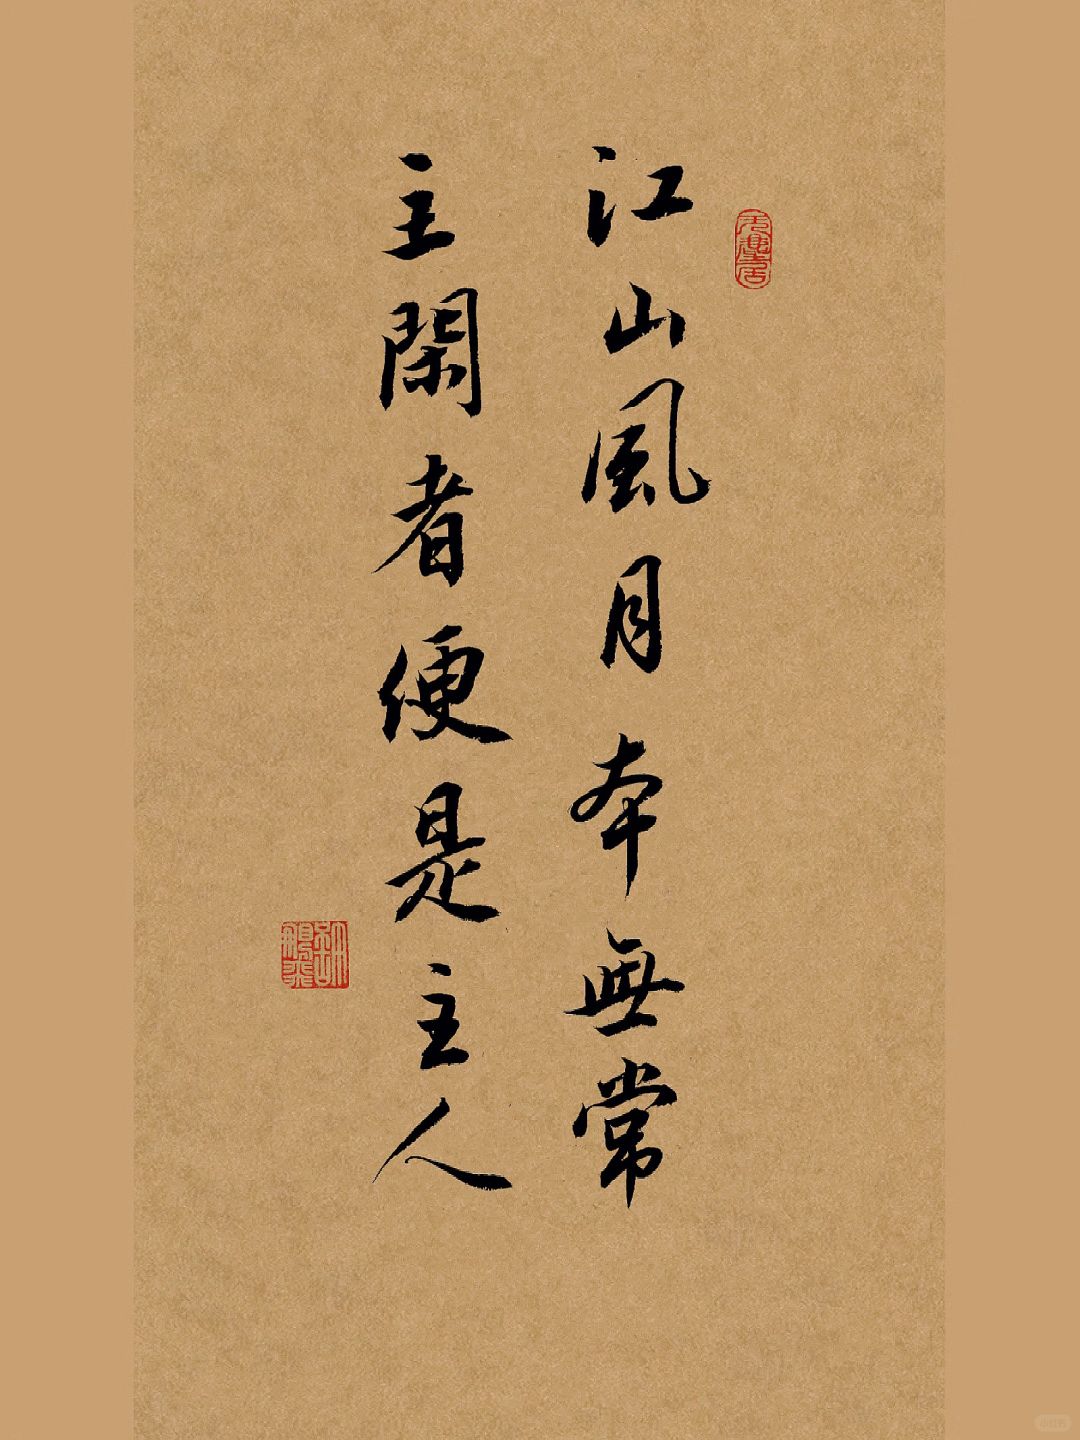 江山風月本無常
主閑者便是主人